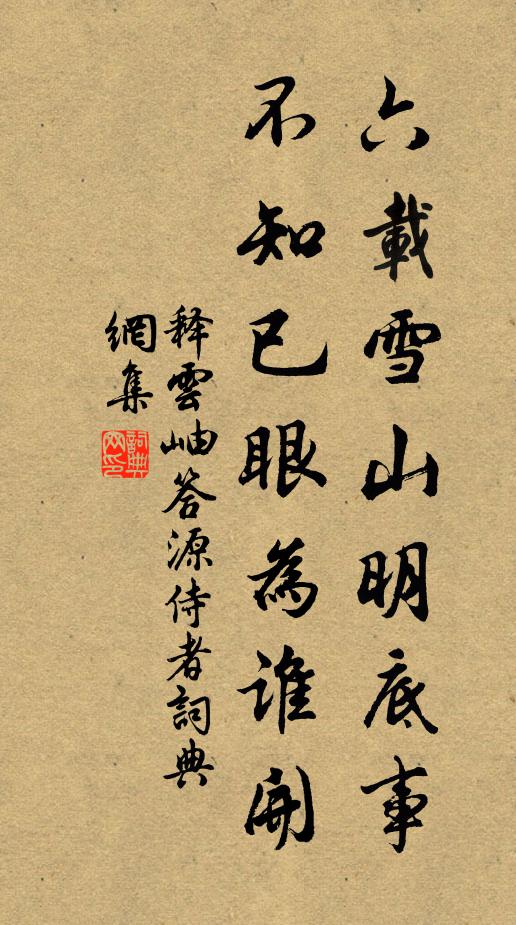 六載雪山明底事
不知已眼為誰開
释雲岫答源侍者詞典
網集
詞典网印